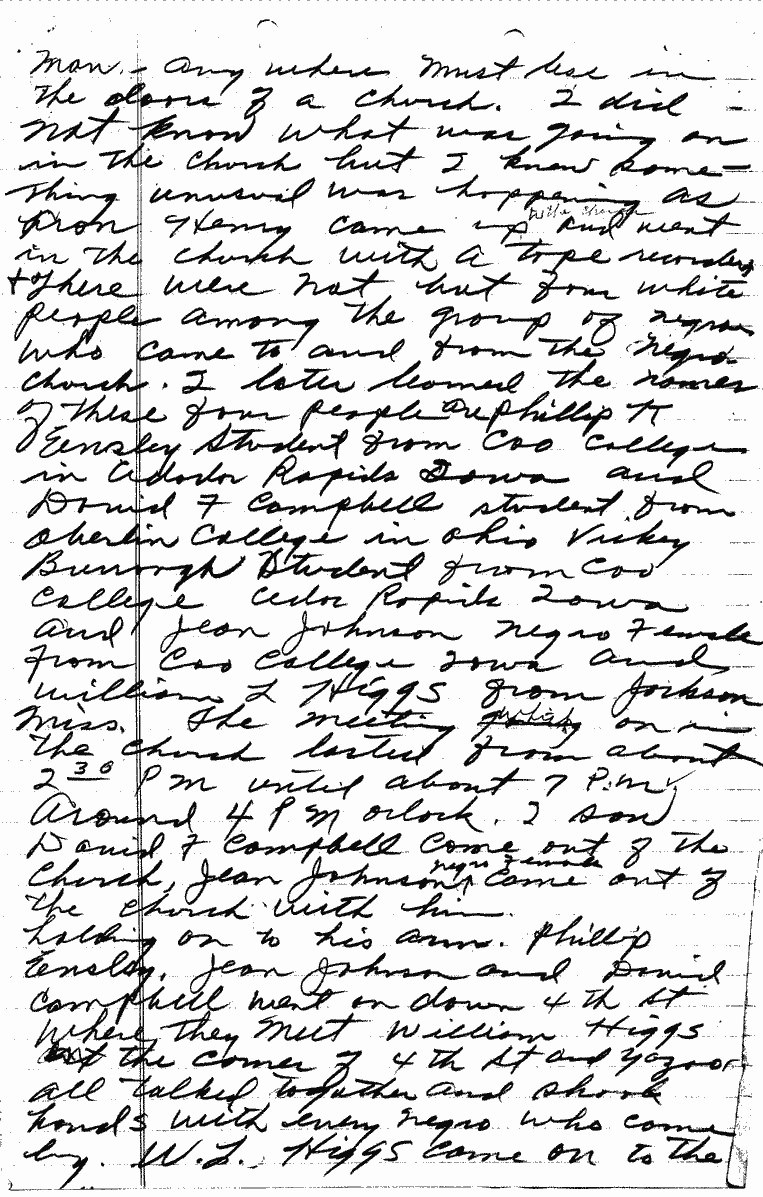 Man. - any where must be in
the doors of a church. I did
not know what was going on
in the church but I knew some-
thing unusual was happening as
Aron Henry came up and went
in the church with a tape recorder
+ There were not but four white
people among the group of negroes
who came to and from the negro
church. I later learned the names
of these four people are Phillip K
Eensley Student from Coo College
in Cedar Rapids Iowa and
David F Campbell student from
Oberlin College in Ohio Vickey
Burrough Student from Coo
College Cedar Rapids Iowa
and Jean Johnson negro Female
from Coo College Iowa and
William L Higgs from Jackson
Miss. The meeting on in
the church lasted from about
2 30 PM until about 7 P.M.
Around 4 PM oclock. I saw
David F Campbell come out of the
negro Female
Church, Jean Johnson, came out of
the church with him.
holding on to his arm. Phillip
Eensley, Jean Johnson and David
Campbell went on down 4th St
where they meet William Higgs
at the corner of 4th St and Yazoo
all talked together and shook
hands with every negro who come
by. W.L. Higgs come on to the